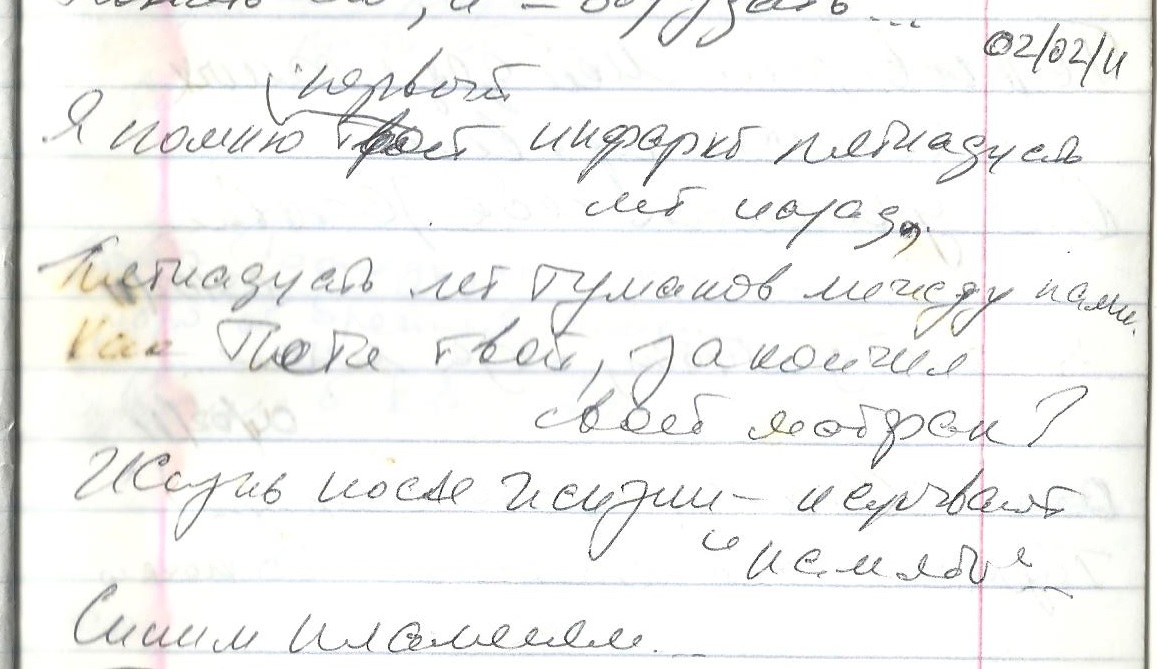 02/02/11
первый
Я помню твой инфаркт пятнадцать
лет назад,
Пятнадцать лет туманов между нами.
Как Петя твой, закончил
свой
Жизнь после жизни –
"память"...
Синим пламенем...